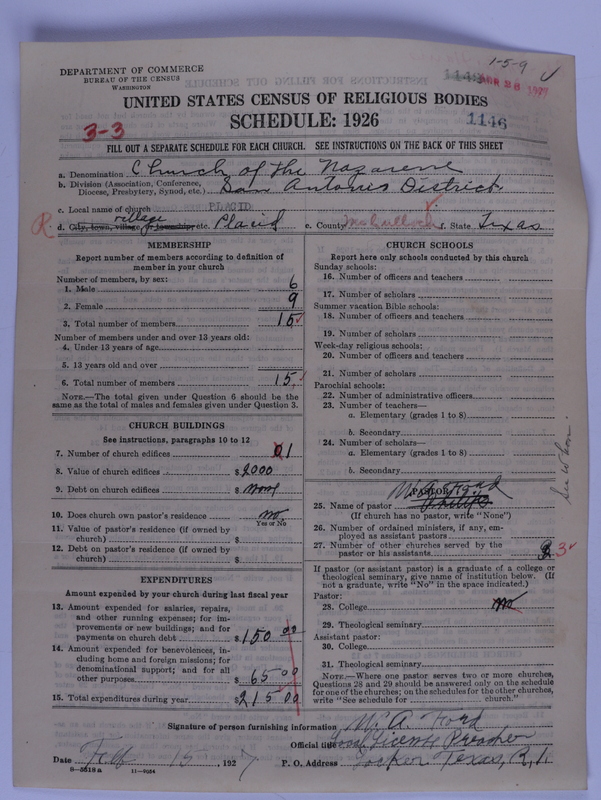 1-5-9
DEPARTMENT OF COMMERCE
BUREAU OF THE CENSUS
WASHINGTON
APR 28 1927
UNITED STATES CENSUS OF RELIGIOUS BODIES
SCHEDULE: 1926
1146
3-3
FILL OUT A SEPARATE SCHEDULE FOR EACH CHURCH. SEE INSTRUCTIONS ON THE BACK OF THIS SHEET
a. Denomination Church of the Nazarene
b. Division (Association, Conference, Diocese, Presbytery, Synod, etc.) San Antonio District
c. Local name of church PLACID
R. d. City, town, village or township, etc. village Placid e. County McCulloch f. State Texas
MEMBERSHIP
Report number of members according to definition of member in your church
Number of members, by sex:
1. Male 6
2. Female 9
3. Total number of members 15
Number of members under and over 13 years old:
4. Under 13 years of age
5. 13 years old and over
6. Total number of members 15
NOTE.—The total given under Question 6 should be the same as the total of males and females given under Question 3.
CHURCH BUILDINGS
See instructions, paragraphs 10 to 12
7. Number of church edifices 1
8. Value of church edifices $ 2000
9. Debt on church edifices $ None
10. Does church own pastor's residence no.
Yes or No
11. Value of pastor's residence (if owned by church) $
12. Debt on pastor's residence (if owned by church) $
EXPENDITURES
Amount expended by your church during last fiscal year
13. Amount expended for salaries, repairs, and other running expenses; for improvements or new buildings; and for payments on church debt $ 150 00
14. Amount expended for benevolences, including home and foreign missions; for denominational support; and for all other purposes $ 65 00
15. Total expenditures during year $ 215 00
CHURCH SCHOOLS
Report here only schools conducted by this church
Sunday schools:
16. Number of officers and teachers
17. Number of scholars
Summer vacation Bible schools:
18. Number of officers and teachers
19. Number of scholars
Week-day religious schools:
20. Number of officers and teachers
21. Number of scholars
Parochial schools:
22. Number of administrative officers
23. Number of teachers—
a. Elementary (grades 1 to 8)
b. Secondary
24. Number of scholars—
a. Elementary (grades 1 to 8)
b. Secondary
PASTOR
25. Name of pastor
(If church has no pastor, write "None")
26. Number of ordained ministers, if any, employed as assistant pastors
27. Number of other churches served by the pastor or his assistants 3
If pastor (or assistant pastor) is a graduate of a college or theological seminary, give name of institution below. (If not a graduate, write "No" in the space indicated.)
Pastor:
28. College no
29. Theological seminary
Assistant pastor:
30. College
31. Theological seminary
NOTE.—Where one pastor serves two or more churches, Questions 28 and 29 should be answered only on the schedule for one of the churches; on the schedules for the other churches, write "See schedule for church."
Signature of person furnishing information
Official title Local Licence Preacher
Date Feb 15, 1927 P. O. Address Texas, R, 1.
8-5518a 11-9054